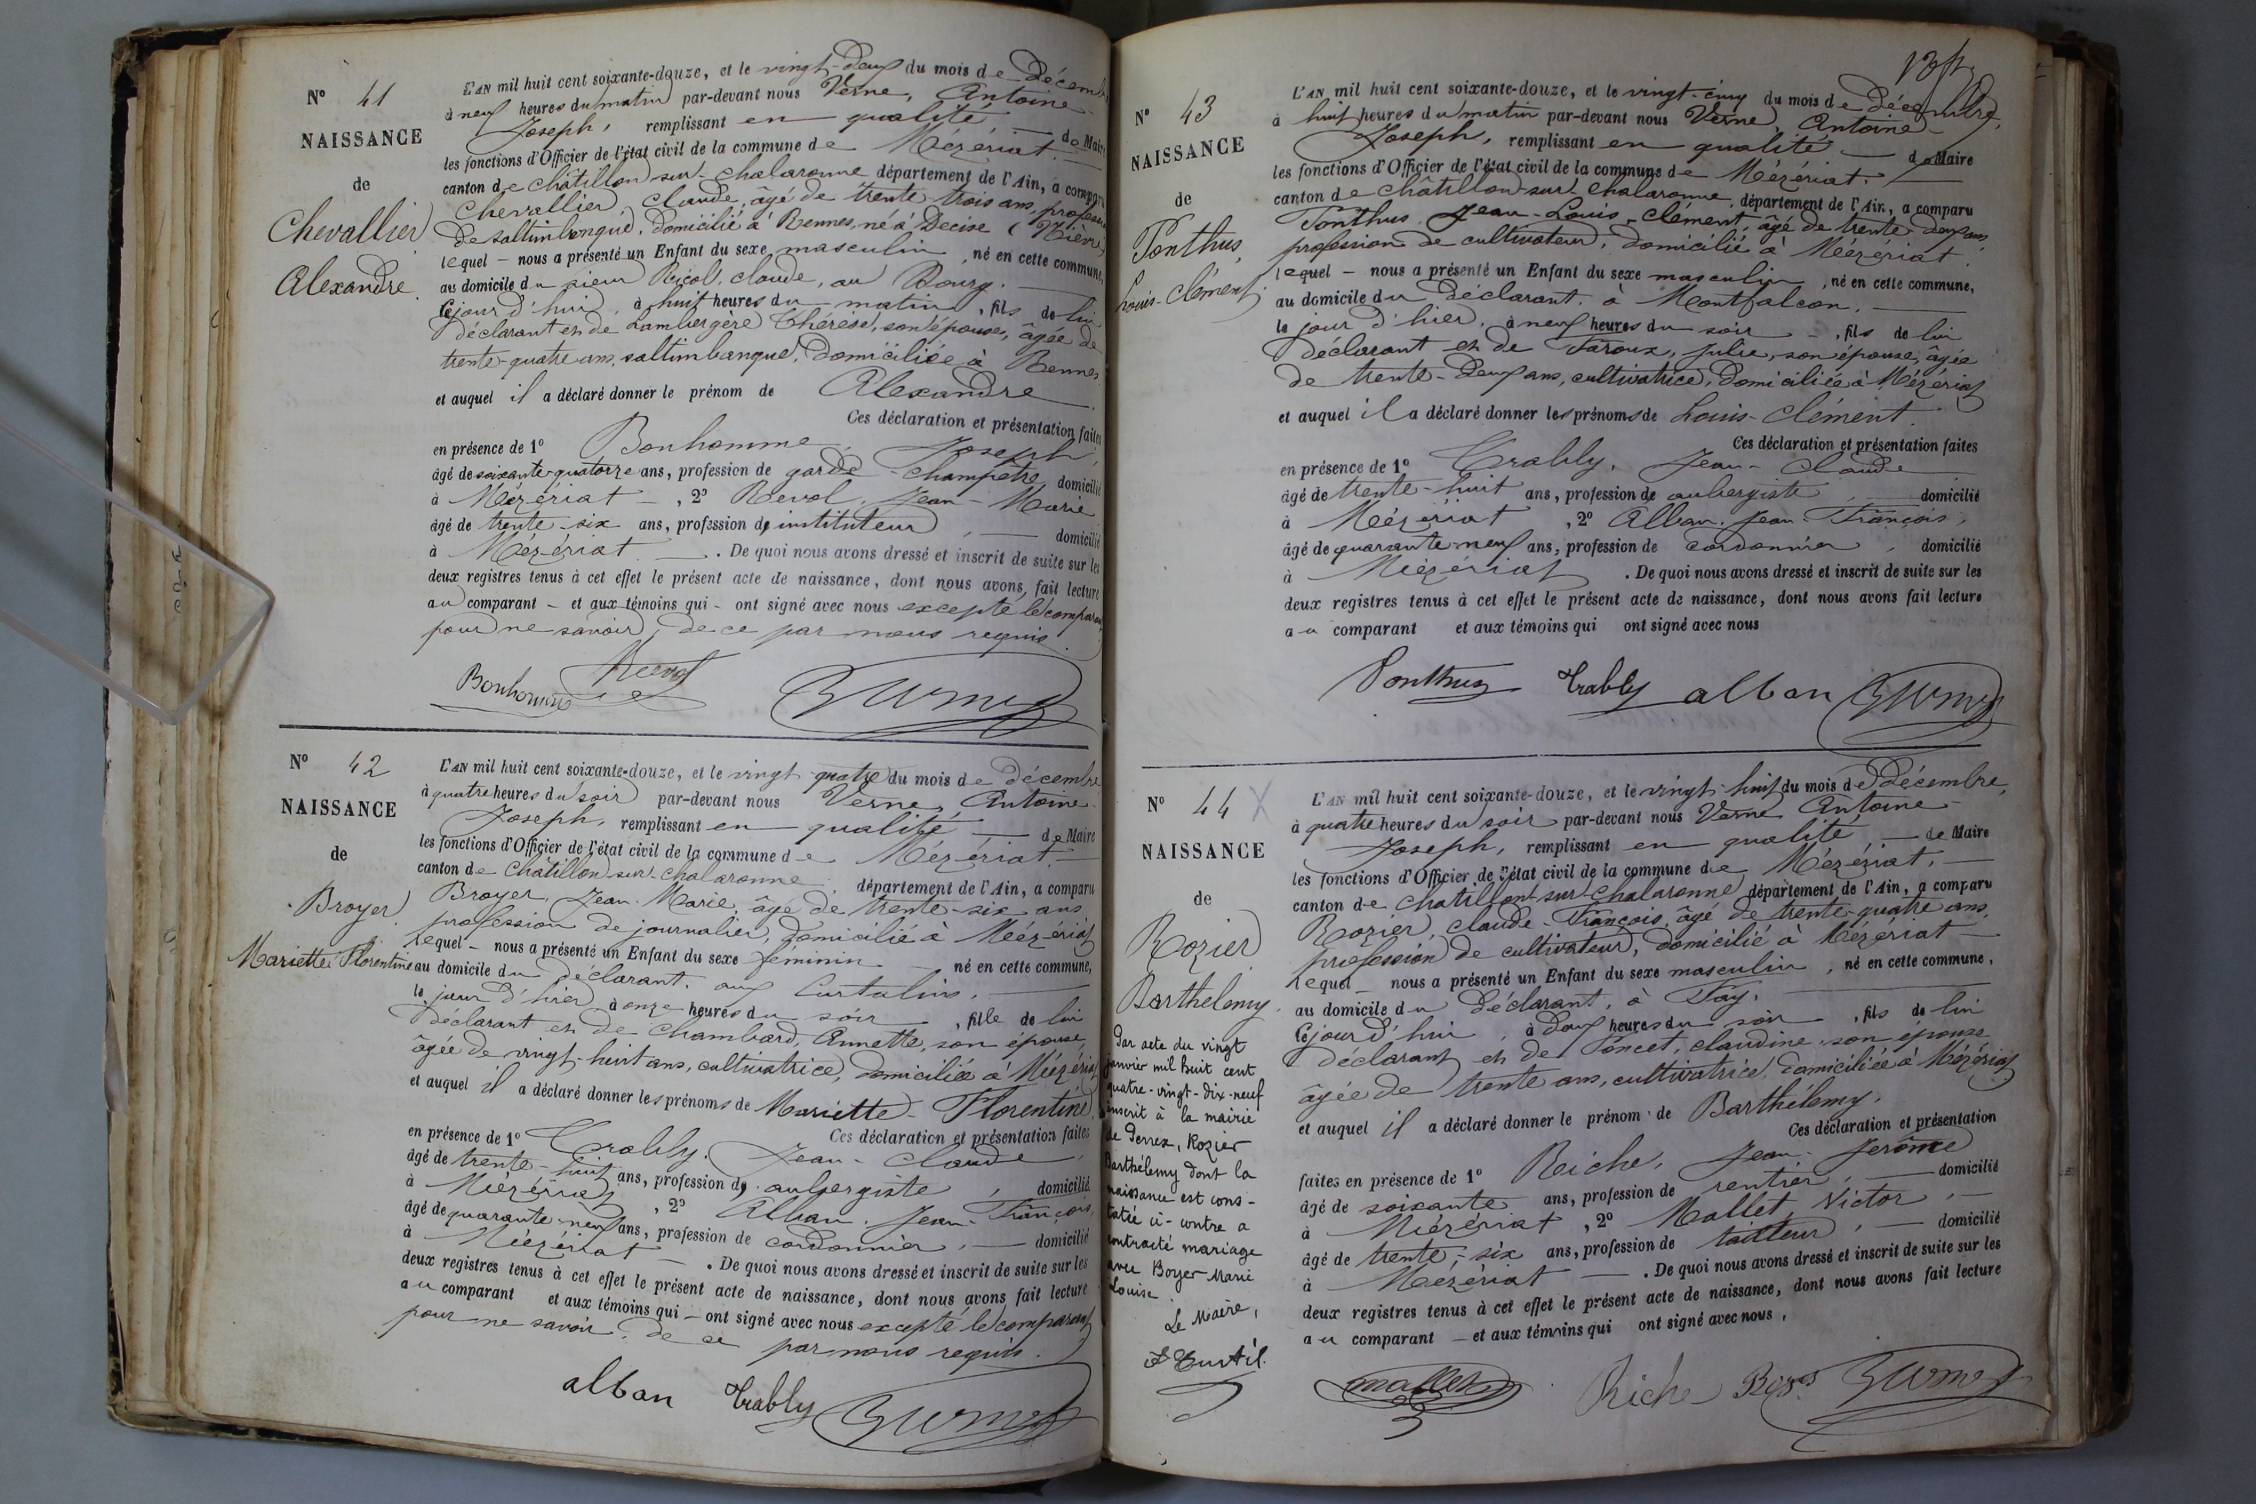 N° 41
NAISSANCE
de
Chevallier
Alexandre
L'AN mil huit cent soixante-douze, et le vingt-deux du mois de Décembre
à neuf heures du matin par-devant nous Verne, Antoine-
Joseph, remplissant en qualité de Maire
les fonctions d'Officier de l'état civil de la commune de Mézériat.
canton de Châtillon-sur-Chalaronne département de l'Ain, a comparu
Chevallier, Claude, âgé de trente trois ans, profession
de saltimbanque, domicilié à Rennes, né à Decise (Nièvre)
lequel - nous a présenté un Enfant du sexe masculin, né en cette commune,
au domicile du sieur Claude, au Bourg.
ce jour d'hui, à huit heures du matin, fils de lui
déclarant et de Lambergère Thérèse, son épouse, âgée de
trente-quatre ans, saltimbanque, domiciliée à Rennes
et auquel il a déclaré donner le prénom de Alexandre
Ces déclaration et présentation faites
en présence de 1° Bonhomme, Joseph,
âgé de soixante-quatorze ans, profession de garde-champêtre, domicilié
à Mézériat, 2° Revol, Jean-Marie
âgé de trente-six ans, profession d'instituteur, domicilié
à Mézériat. De quoi nous avons dressé et inscrit de suite sur les
deux registres tenus à cet effet le présent acte de naissance, dont nous avons, fait lecture
au comparant - et aux témoins qui - ont signé avec nous excepté le comparant
pour ne savoir, de ce par nous requis.
Bonhomme Revol
N° 42
NAISSANCE
de
Broyer
Mariette Florentine
L'AN mil huit cent soixante-douze, et le vingt-quatre du mois de décembre
à quatre heures du soir par-devant nous Verne, Antoine-
Joseph, remplissant en qualité de Maire
les fonctions d'Officier de l'état civil de la commune de Mézériat.
canton de Châtillon-sur-Chalaronne département de l'Ain, a comparu
Broyer, Jean-Marie, âgé de trente-six ans
profession de journalier, domicilié à Mézériat
lequel - nous a présenté un Enfant du sexe féminin né en cette commune,
au domicile du déclarant, aux Curtalins,
le jour d'hier à onze heures du soir, fille de lui
déclarant et de Chambard, Annette, son épouse,
âgée de vingt-huit ans, cultivatrice, domiciliée à Mézériat
et auquel il a déclaré donner les prénoms de Mariette-Florentine
Ces déclaration et présentation faites
en présence de 1° Trably, Jean-Claude,
âgé de trente-huit ans, profession d'aubergiste, domicilié
à Mézériat, 2° Alban, Jean-François,
âgé de quarante-neuf ans, profession de cordonnier, domicilié
à Mézériat. De quoi nous avons dressé et inscrit de suite sur les
deux registres tenus à cet effet le présent acte de naissance, dont nous avons fait lecture
au comparant et aux témoins qui - ont signé avec nous excepté le comparant
pour ne savoir, de ce par nous requis.
alban Trably
N° 43
NAISSANCE
de
Ponthus,
Louis-Clément
L'AN mil huit cent soixante-douze, et le vingt-cinq du mois de décembre,
à huit heures du matin par-devant nous Verne, Antoine-
Joseph, remplissant en qualité de Maire
les fonctions d'Officier de l'état civil de la commune de Mézériat.
canton de Châtillon-sur-Chalaronne, département de l'Ain, a comparu
Ponthus, Jean-Louis-Clément, âgé de trente-deux ans,
profession de cultivateur, domicilié à Mézériat.
lequel - nous a présenté un Enfant du sexe masculin, né en cette commune,
au domicile du déclarant, à Montfalcon.
le jour d'hier, à neuf heures du soir, fils de lui
déclarant et de Faroux, Julie, son épouse, âgée
de trente-deux ans, cultivatrice, domiciliée à Mézériat
et auquel il a déclaré donner les prénoms de Louis-Clément.
Ces déclaration et présentation faites
en présence de 1° Trably, Jean-Claude
âgé de trente-huit ans, profession de aubergiste, domicilié
à Mézériat, 2° Alban, Jean-François,
âgé de quarante-neuf ans, profession de cordonnier, domicilié
à Mézériat. De quoi nous avons dressé et inscrit de suite sur les
deux registres tenus à cet effet le présent acte de naissance, dont nous avons fait lecture
au comparant et aux témoins qui ont signé avec nous
Ponthus Trably alban
N° 44
NAISSANCE
de
Rozier
Barthélemy
Par acte du vingt
janvier mil huit cent
quatre-vingt-dix-neuf
inscrit à la mairie
de Perrex, Rozier
Barthélemy dont la
naissance est cons-
tatée ci-contre a
contracté mariage
avec Boyer Marie
Louise.
Le Maire,
L'AN mil huit cent soixante-douze, et le vingt-huit du mois de Décembre,
à quatre heures du soir par-devant nous Verne Antoine-
Joseph, remplissant en qualité de Maire
les fonctions d'Officier de l'état civil de la commune de Mézériat,
canton de Châtillon-sur-Chalaronne, département de l'Ain, a comparu
Rozier, Claude-François, âgé de trente-quatre ans,
profession de cultivateur, domicilié à Mézériat
lequel - nous a présenté un Enfant du sexe masculin, né en cette commune,
au domicile du déclarant, à Fay,
ce jour d'hui, à deux heures du soir, fils de lui
déclarant et de Poncet, Claudine, son épouse
âgée de trente ans, cultivatrice, domiciliée à Mézériat
et auquel il a déclaré donner le prénom de Barthélemy.
Ces déclaration et présentation
faites en présence de 1° Riche, Jean-Jerôme
âgé de soixante ans, profession de rentier, domicilié
à Mézériat, 2° Mallet, Victor,
âgé de trente-six ans, profession de tailleur, domicilié
à Mézériat. De quoi nous avons dressé et inscrit de suite sur les
deux registres tenus à cet effet le présent acte de naissance, dont nous avons fait lecture
au comparant - et aux témoins qui ont signé avec nous,
mallet Riche